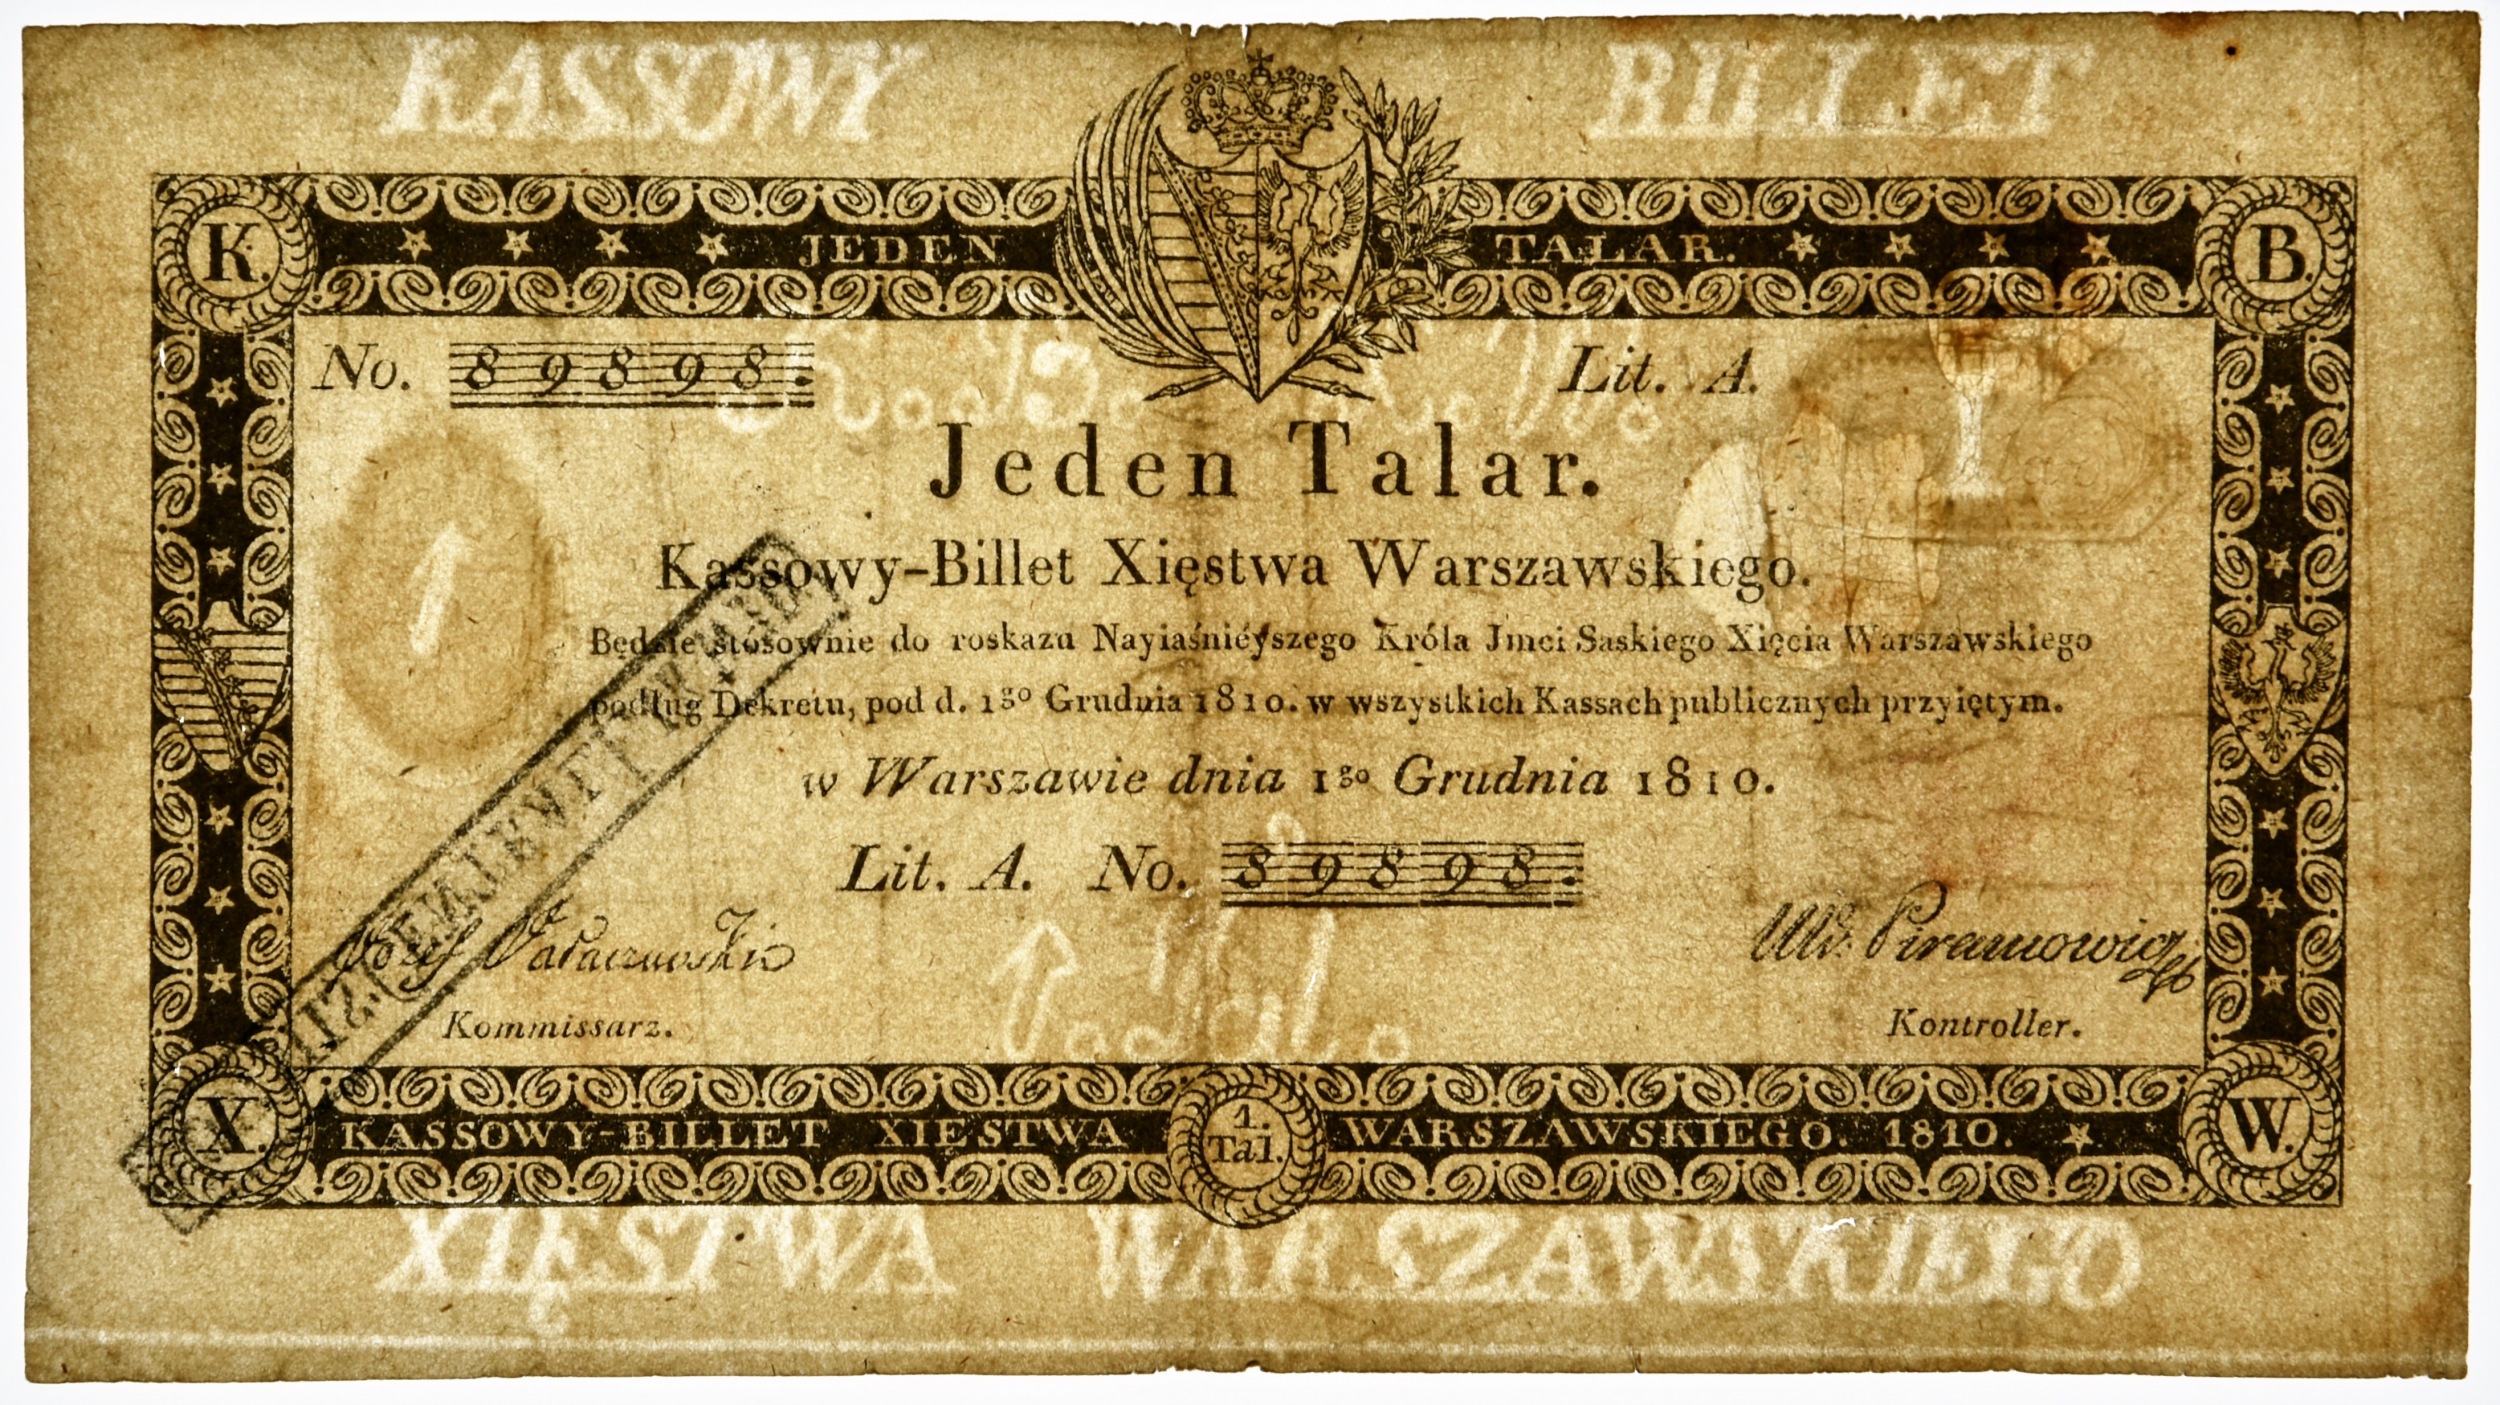 KASSOWY BILLET
K. JEDEN TALAR. B.
No. 89898. Lit. A.
Jeden Talar.
1
Kassowy-Billet Xięstwa Warszawskiego.
Będzie stósownie do roskazu Nayiaśniéyszego Króla Jmci Saskiego Xięcia Warszawskiego
podług Dekretu, pod d. 1go Grudnia 1810. w wszystkich Kassach publicznych przyiętym.
w Warszawie dnia 1go Grudnia 1810.
Lit. A. No. 89898.
Kommissarz. Kontroller.
X. KASSOWY-BILLET XIESTWA 1. Tal. WARSZAWSKIEGO. 1810. W.
XIĘSTWA WARSZAWSKIEGO